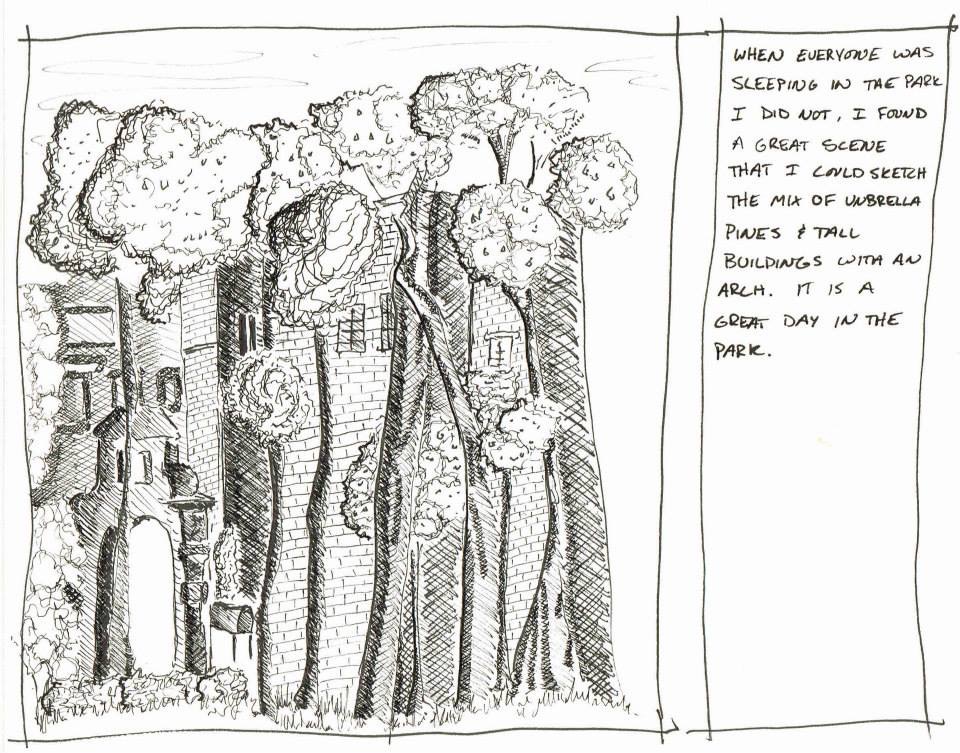 WHEN EVERYONE WAS
SLEEPING IN THE PARK
I DID NOT, I FOUND
A GREAT SCENE
THAT I COULD SKETCH
THE MIX OF UNBRELLA
PINES & TALL
BUILDINGS WITH AN
ARCH. IT IS A
GREAT DAY IN THE
PARK.